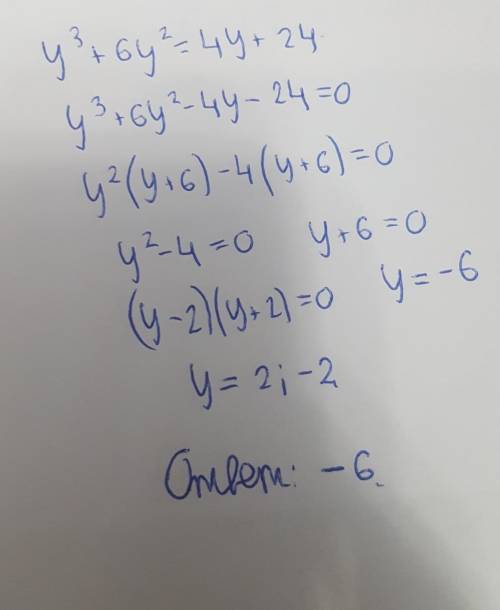 y³ + 6y² = 4y + 24
y³ + 6y² - 4y - 24 = 0
y² (y + 6) - 4 (y + 6) = 0
y² - 4 = 0 y + 6 = 0
(y - 2)(y + 2) = 0 y = -6
y = 2; -2
Ответ: -6.